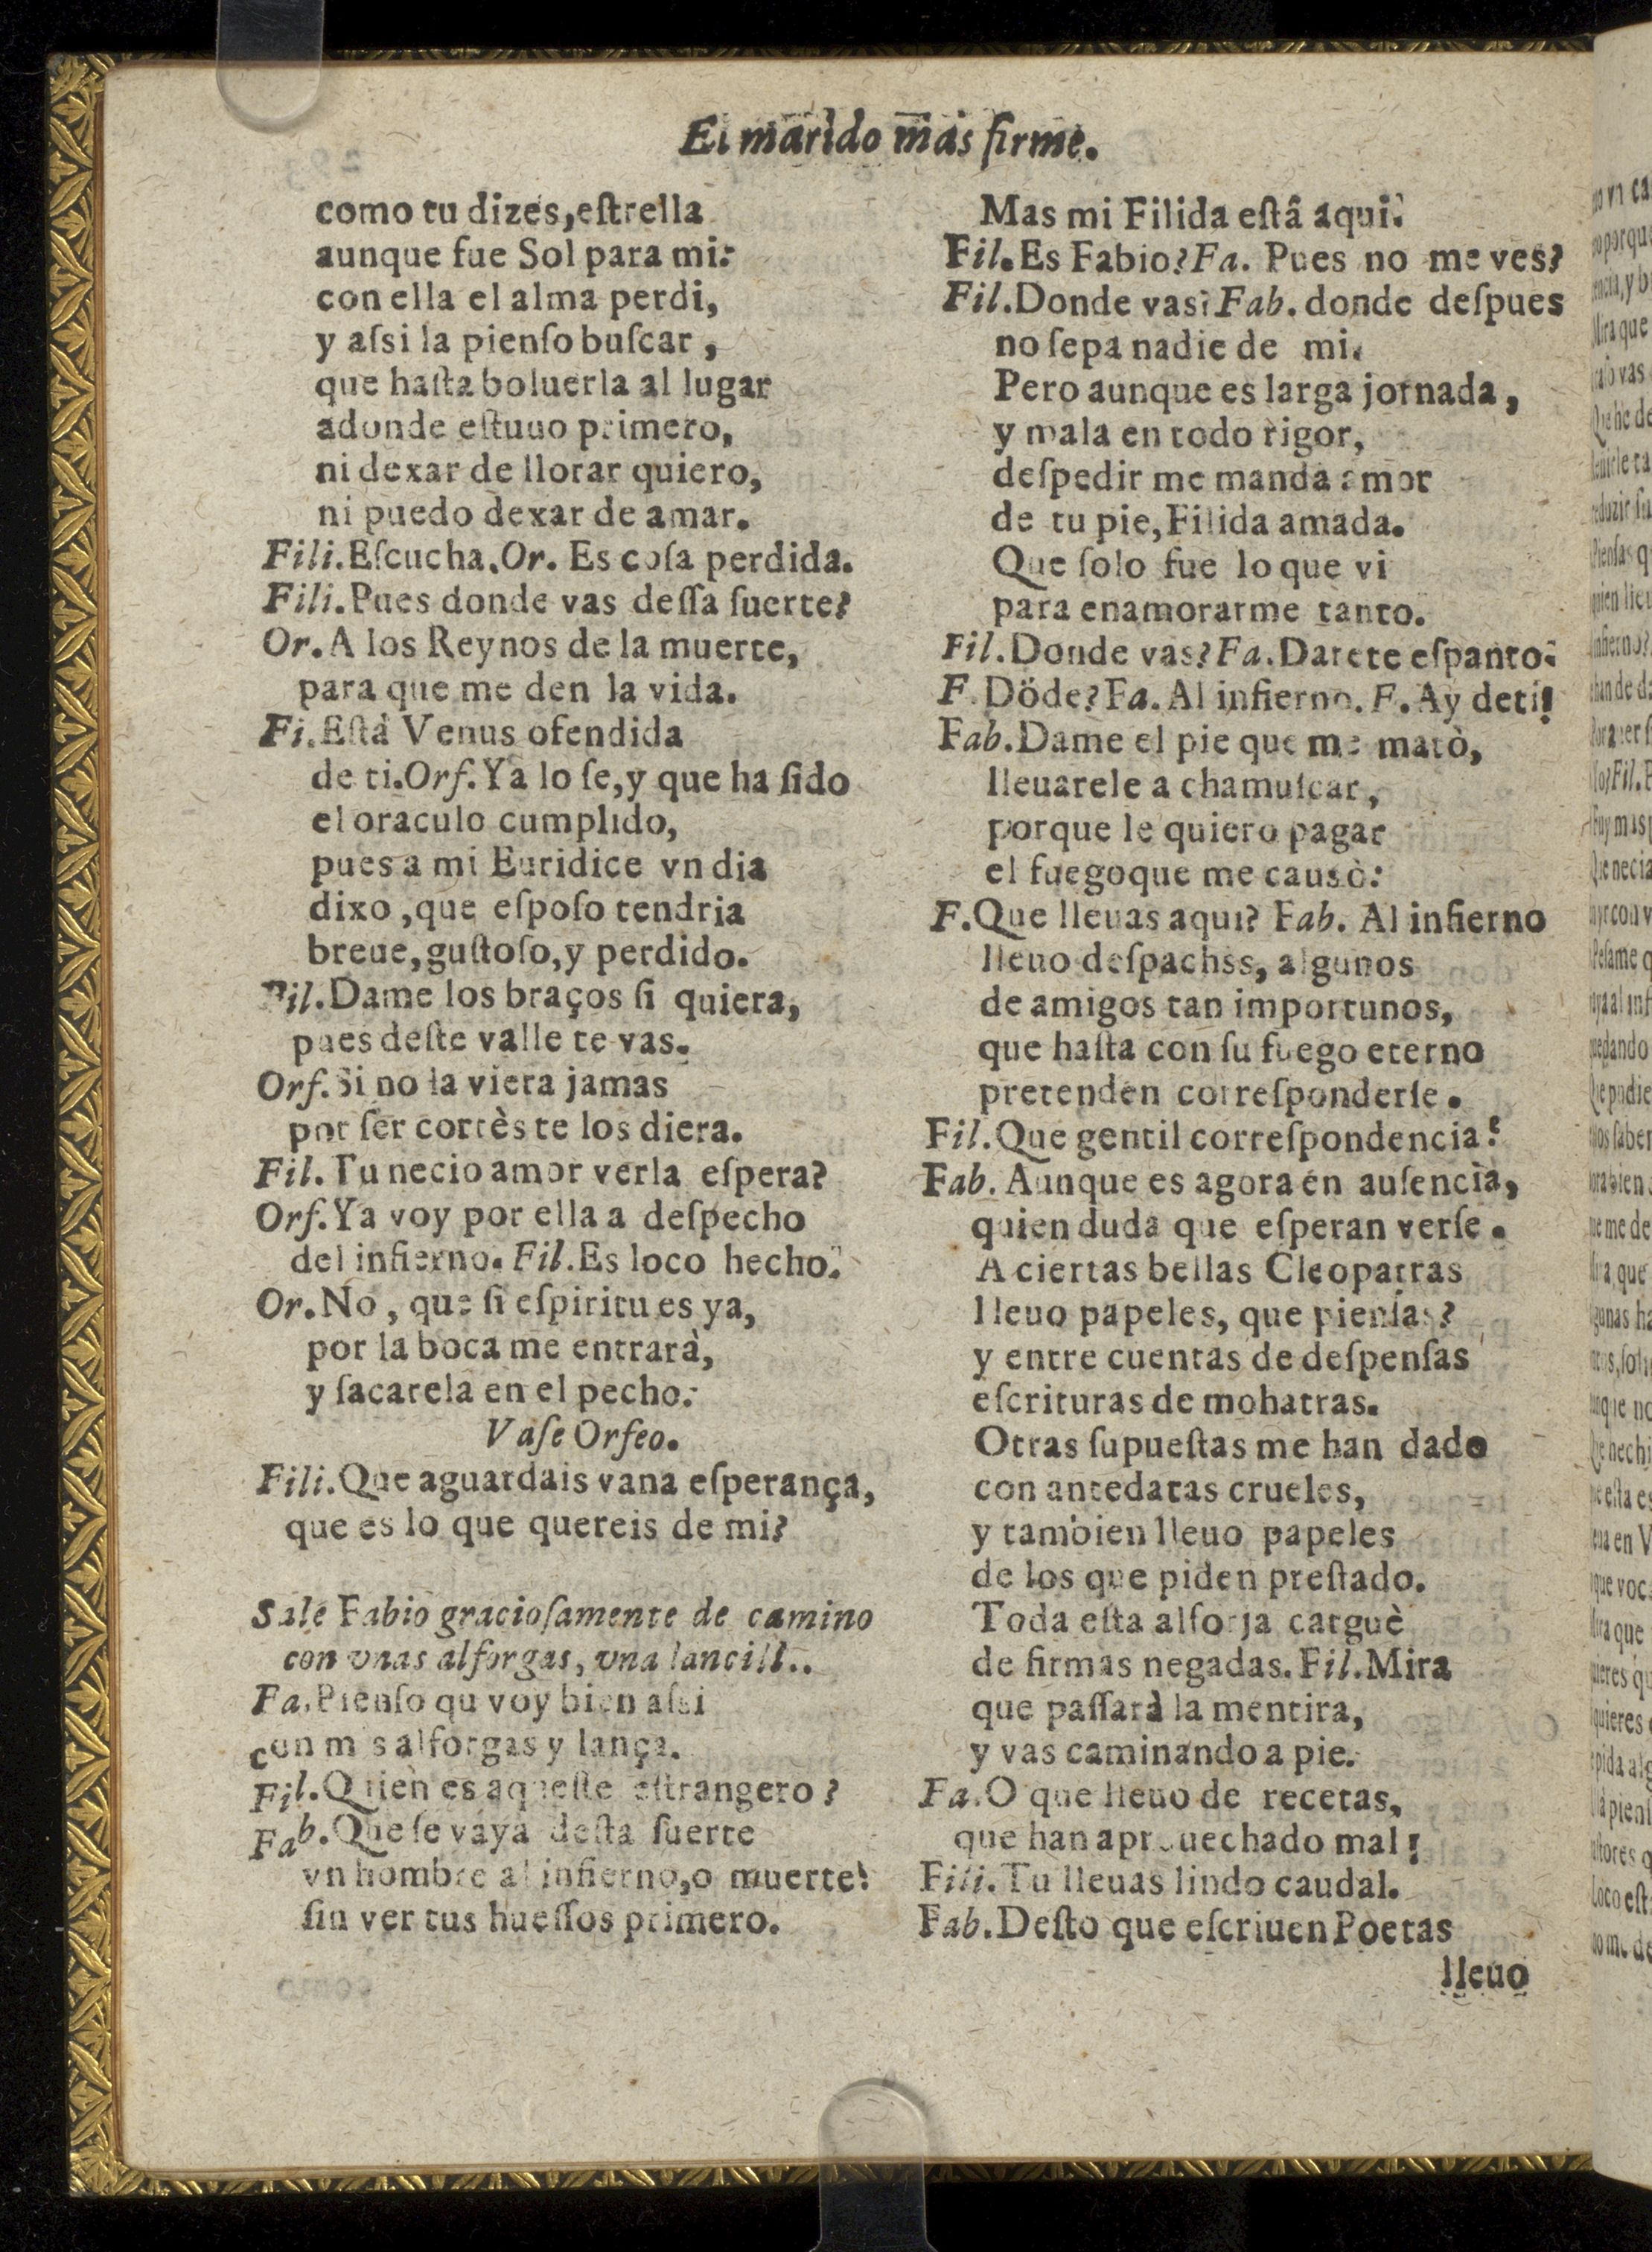 El marido mas firme.
como tu dizes, eſtrella
aunque fue Sol para mi:
con ella el alma perdi,
y aſsi la pienſo buſcar,
que haſta boluerla al lugar
adonde eſtuuo primero,
ni dexar de llorar quiero,
ni puedo dexar de amar.
Fili. Eſcucha. Or. Es coſa perdida.
Fili. Pues donde vas deſſa ſuerte?
Or. A los Reynos de la muerte,
para que me den la vida.
Fi. Eſtâ Venus ofendida
de ti. Orf. Ya lo ſe, y que ha ſido
el oraculo cumplido,
pues a mi Euridice vn dia
dixo, que eſpoſo tendria
breue, guſtoſo, y perdido.
Fil. Dame los braços ſi quiera,
pues deſte valle te vas.
Orf. Si no la viera jamas
por ſer cortès te los diera.
Fil. Tu necio amor verla eſpera?
Orf. Ya voy por ella a deſpecho
del infierno. Fil. Es loco hecho.
Or. No, que ſi eſpiritu es ya,
por la boca me entrarà,
y ſacarela en el pecho.
Vaſe Orfeo.
Fili. Que aguardais vana eſperança,
que es lo que quereis de mi?
Sale Fabio gracioſamente de camino
con vnas alforgas, vna lancill..
Fa. Pienſo qu voy bien aſsi
con m s alforgas y lança.
Fil. Quien es aqueſte eſtrangero?
Fab. Que ſe vaya deſta ſuerte
vn hombre al infierno, o muerte!
ſin ver tus hueſſos primero.
Mas mi Filida eſtâ aqui.
Fil. Es Fabio? Fa. Pues no me ves?
Fil. Donde vas? Fab. donde deſpues
no ſepa nadie de mi.
Pero aunque es larga jornada,
y mala en todo rigor,
deſpedir me manda amor
de tu pie, Filida amada.
Que ſolo fue lo que vi
para enamorarme tanto.
Fil. Donde vas? Fa. Darete eſpanto.
F. Döde? Fa. Al infierno. F. Ay deti!
Fab. Dame el pie que me matò,
lleuarele a chamuſcar,
porque le quiero pagar
el fuegoque me causò:
F. Que lleuas aqui? Fab. Al infierno
lleuo deſpachss, algunos
de amigos tan importunos,
que haſta con ſu fuego eterno
pretenden correſponderſe.
Fil. Que gentil correſpondencia!
Fab. Aunque es agora en auſencia,
quien duda que eſperan verſe.
A ciertas bellas Cleopatras
lleuo papeles, que pienſas?
y entre cuentas de deſpenſas
eſcrituras de mohatras.
Otras ſupueſtas me han dado
con antedatas crueles,
y tambien lleuo papeles
de los que piden preſtado.
Toda eſta alforja carguè
de firmas negadas. Fil. Mira
que paſſarà la mentira,
y vas caminando a pie.
Fa. O que lleuo de recetas,
que han aprouechado mal!
Fili. Tu lleuas lindo caudal.
Fab. Deſto que eſcriuen Poetas
lleuo